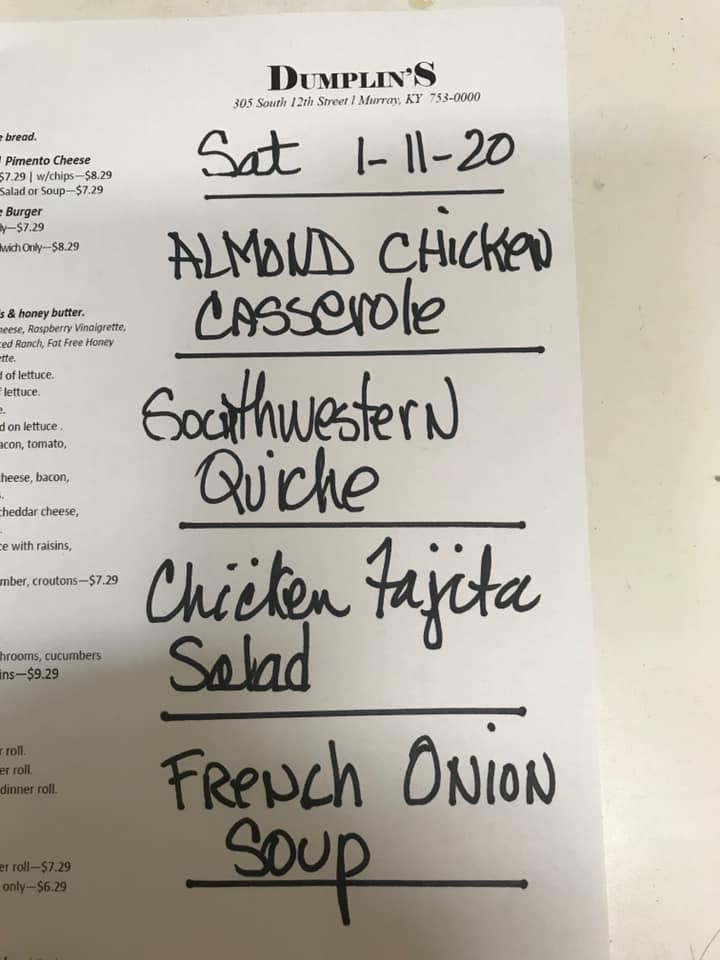 DUMPLIN'S
305 South 12th Street | Murray, KY 753-0000
Sat 1-11-20
ALMOND CHICKEN
CASSEROLE
Southwestern
Quiche
Chicken Fajita
Salad
FRENCH ONION
SOUP
bread.
Pimento Cheese
$7.29 | w/chips—$8.29
Salad or Soup—$7.29
Burger
—$7.29
Only—$8.29
& honey butter.
Raspberry Vinaigrette,
Ranch, Fat Free Honey
of lettuce.
lettuce.
on lettuce .
tomato,
bacon,
cheddar cheese,
with raisins,
croutons—$7.29
cucumbers
—$9.29
roll.
roll.
dinner roll.
roll—$7.29
only—$6.29